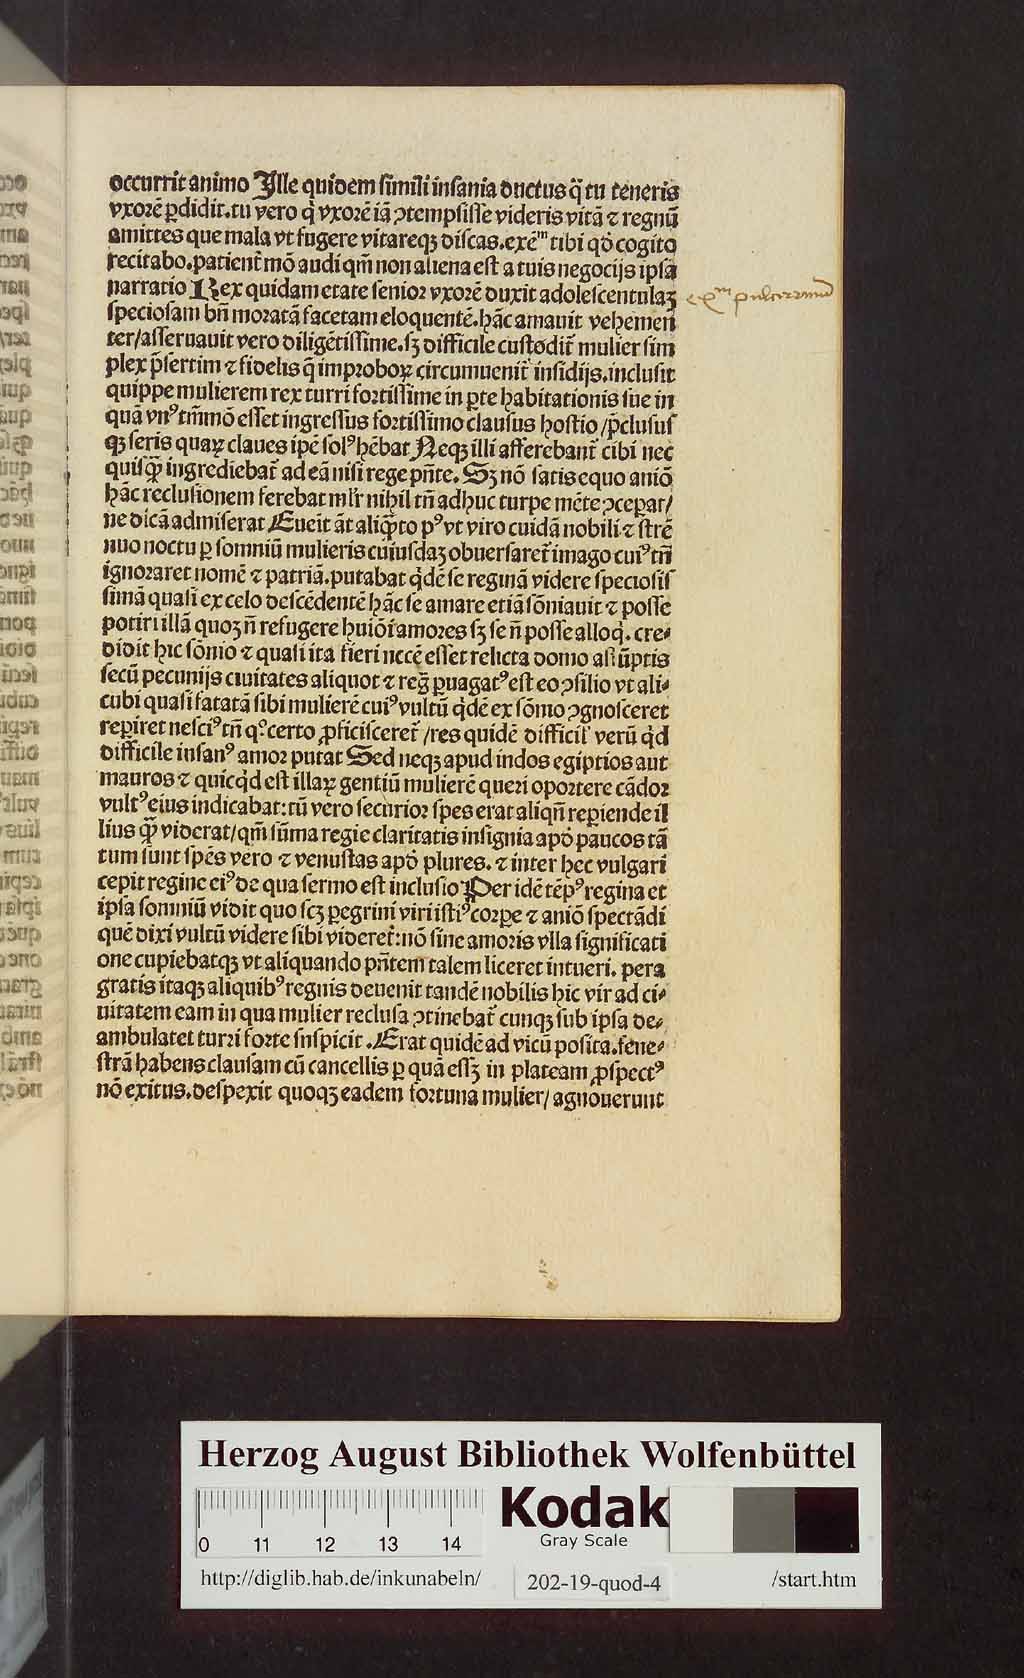 occurrit animo Ille quidem simili insania ductus q̃ tu teneris
vxorẽ ꝑdidit. tu vero q̇ vxorẽ iã ꝯtempsisse videris vitã ⁊ regnũ
amittes que mala vt fugere vitareqꝫ discas. exẽᵐ tibi qđ cogito
recitabo. patienť mõ audi qm̃ non aliena est a tuis negocijs ipsa
narratio Rex quidam etate senior vxorẽ duxit adolescentulaꝫ
exᵐ pulcerrimũ
speciosam bñ moratã facetam eloquentẽ. hãc amauit vehemen
ter/asseruauit vero diligẽtissime. sꝫ difficile custodiť mulier sim
plex p̃sertim ⁊ fidelis q̃ improboꝝ circumueniť insidijs. inclusit
quippe mulierem rex turri fortissime in ꝑte habitationis sue in
quã vnꝰ tm̃mõ esset ingressus fortissimo clausus hostio/p̃clusus
qꝫ seris quaꝝ claues ipẽ solꝰ hẽbat Neqꝫ illi afferebanť cibi nec
quisq̃ꝫ ingrediebať ad eã nisi rege pñte. Sꝫ nõ satis equo aniõ
hãc reclusionem ferebat mlr̃ nihil tñ adhuc turpe mẽte ꝯceperat/
ne dicã admiserat Eueit ãt aliq̃to pꝰ vt viro cuidã nobili ⁊ strẽ
nuo noctu ꝑ somniũ mulieris cuiusdaꝫ obuersareť imago cuiꝰ tñ
ignoraret nomẽ ⁊ patriã. putabat q̇dẽ se reginã videre speciosis
simã quasi ex celo descẽdentẽ hãc se amare etiã sõniauit ⁊ posse
potiri illã quoꝫ ñ refugere huiõi amores sꝫ se ñ posse alloq̇. cre⸗
didit hic sõnio ⁊ quasi ita fieri nccẽ esset relicta domo assũptis
secũ pecunijs ciuitates aliquot ⁊ reg̃ ꝑuagatꝰ est eo ꝯsilio vt ali⸗
cubi quasi fatatã sibi mulierẽ cuiꝰ vultũ q̇dẽ ex sõnio ꝯgnosceret
reperiret nesciꝰ tñ qͦ certo ꝓficisceret̃/res quidẽ difficil' verũ q̇d
difficile insanꝰ amor putat Sed neqꝫ apud indos egiptios aut
mauros ⁊ quicq̇d est illaꝝ gentiũ mulierẽ queri oportere cãdor
vultꝰ eius indicabat: tũ vero securior spes erat aliqñ reperiende il
lius q̃ꝫ viderat/qm̃ sũma regie claritatis insignia apđ paucos tã
tum sunt spẽs vero ⁊ venustas apđ plures. ⁊ inter hec vulgari
cepit regine eiꝰ de qua sermo est inclusio Per idẽ tẽpꝰ regina et
ipsa somniũ vidit quo scꝫ ꝑegrini viri istiꝰ corꝑe ⁊ aniõ spectãdi
quẽ dixi vultũ videre sibi videreť: nõ sine amoris vlla significati
one cupiebatqꝫ vt aliquando pñtem talem liceret intueri. pera
gratis itaqꝫ aliquibꝰ regnis deuenit tandẽ nobilis hic vir ad ci⸗
uitatem eam in qua mulier reclusa ꝯtinebať cunqꝫ sub ipsa de⸗
ambulatet turri forte suspicit. Erat quidẽ ad vicũ posita. fene⸗
strã habens clausam cũ cancellis ꝑ quã essꝫ in plateam ꝓspectꝰ
nõ exitus. despexit quoqꝫ eadem fortuna mulier/agnouerunt
Herzog August Bibliothek Wolfenbüttel
0 11 12 13 14
Kodak
Gray Scale
http://diglib.hab.de/inkunabeln/
202-19-quod-4
/start.htm